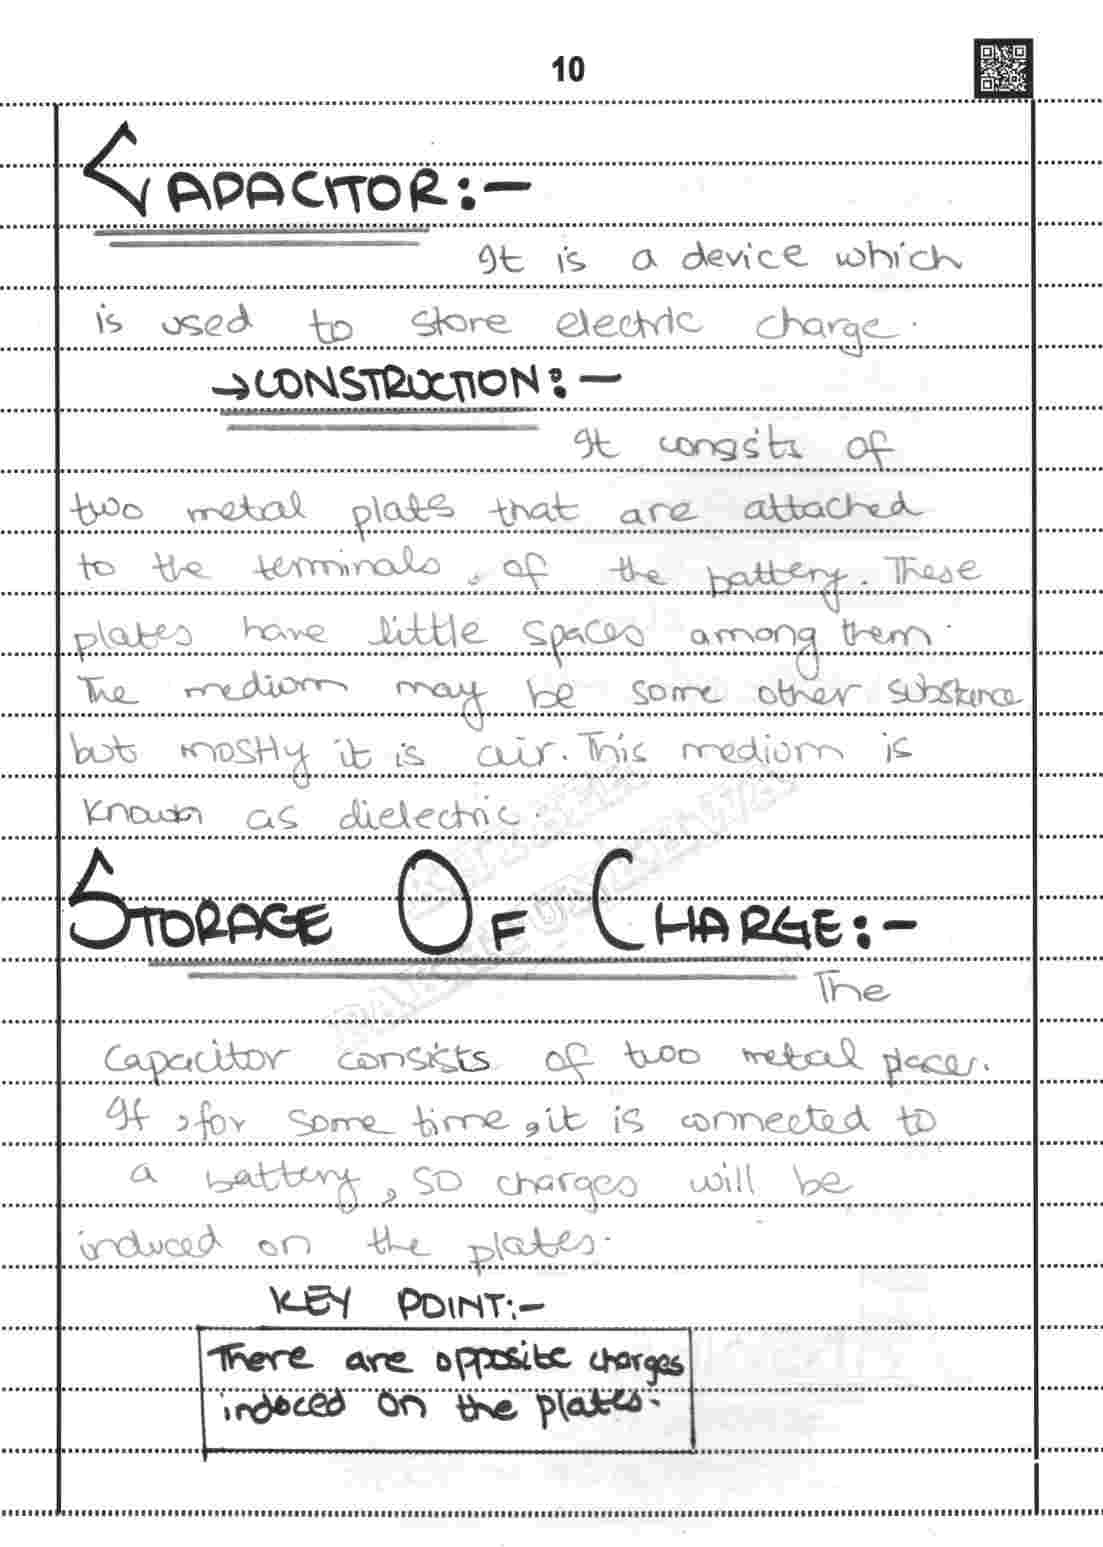 10
CAPACITOR:-
It is a device which
is used to store electric charge.
→CONSTRUCTION:-
It consists of
two metal plats that are attached
to the terminals of the battery. These
plates have little spaces among them.
The medium may be some other substance
but mostly it is air. This medium is
known as dielectric.
STORAGE OF CHARGE:-
The
capacitor consists of two metal places.
If, for some time, it is connected to
a battery, so charges will be
induced on the plates.
KEY POINT:-
There are opposite charges
induced on the plates.